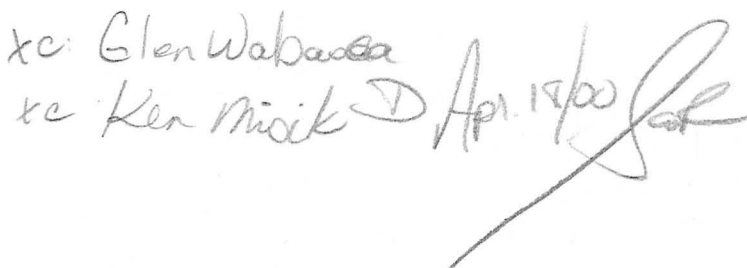 xc: Glen Wabasca
xc Ken Misik D Apr. 18/00